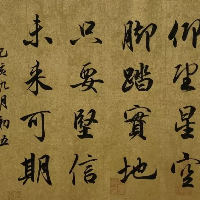 仰望星空
腳踏實地
只要堅信
未来可期
乙亥九月初五